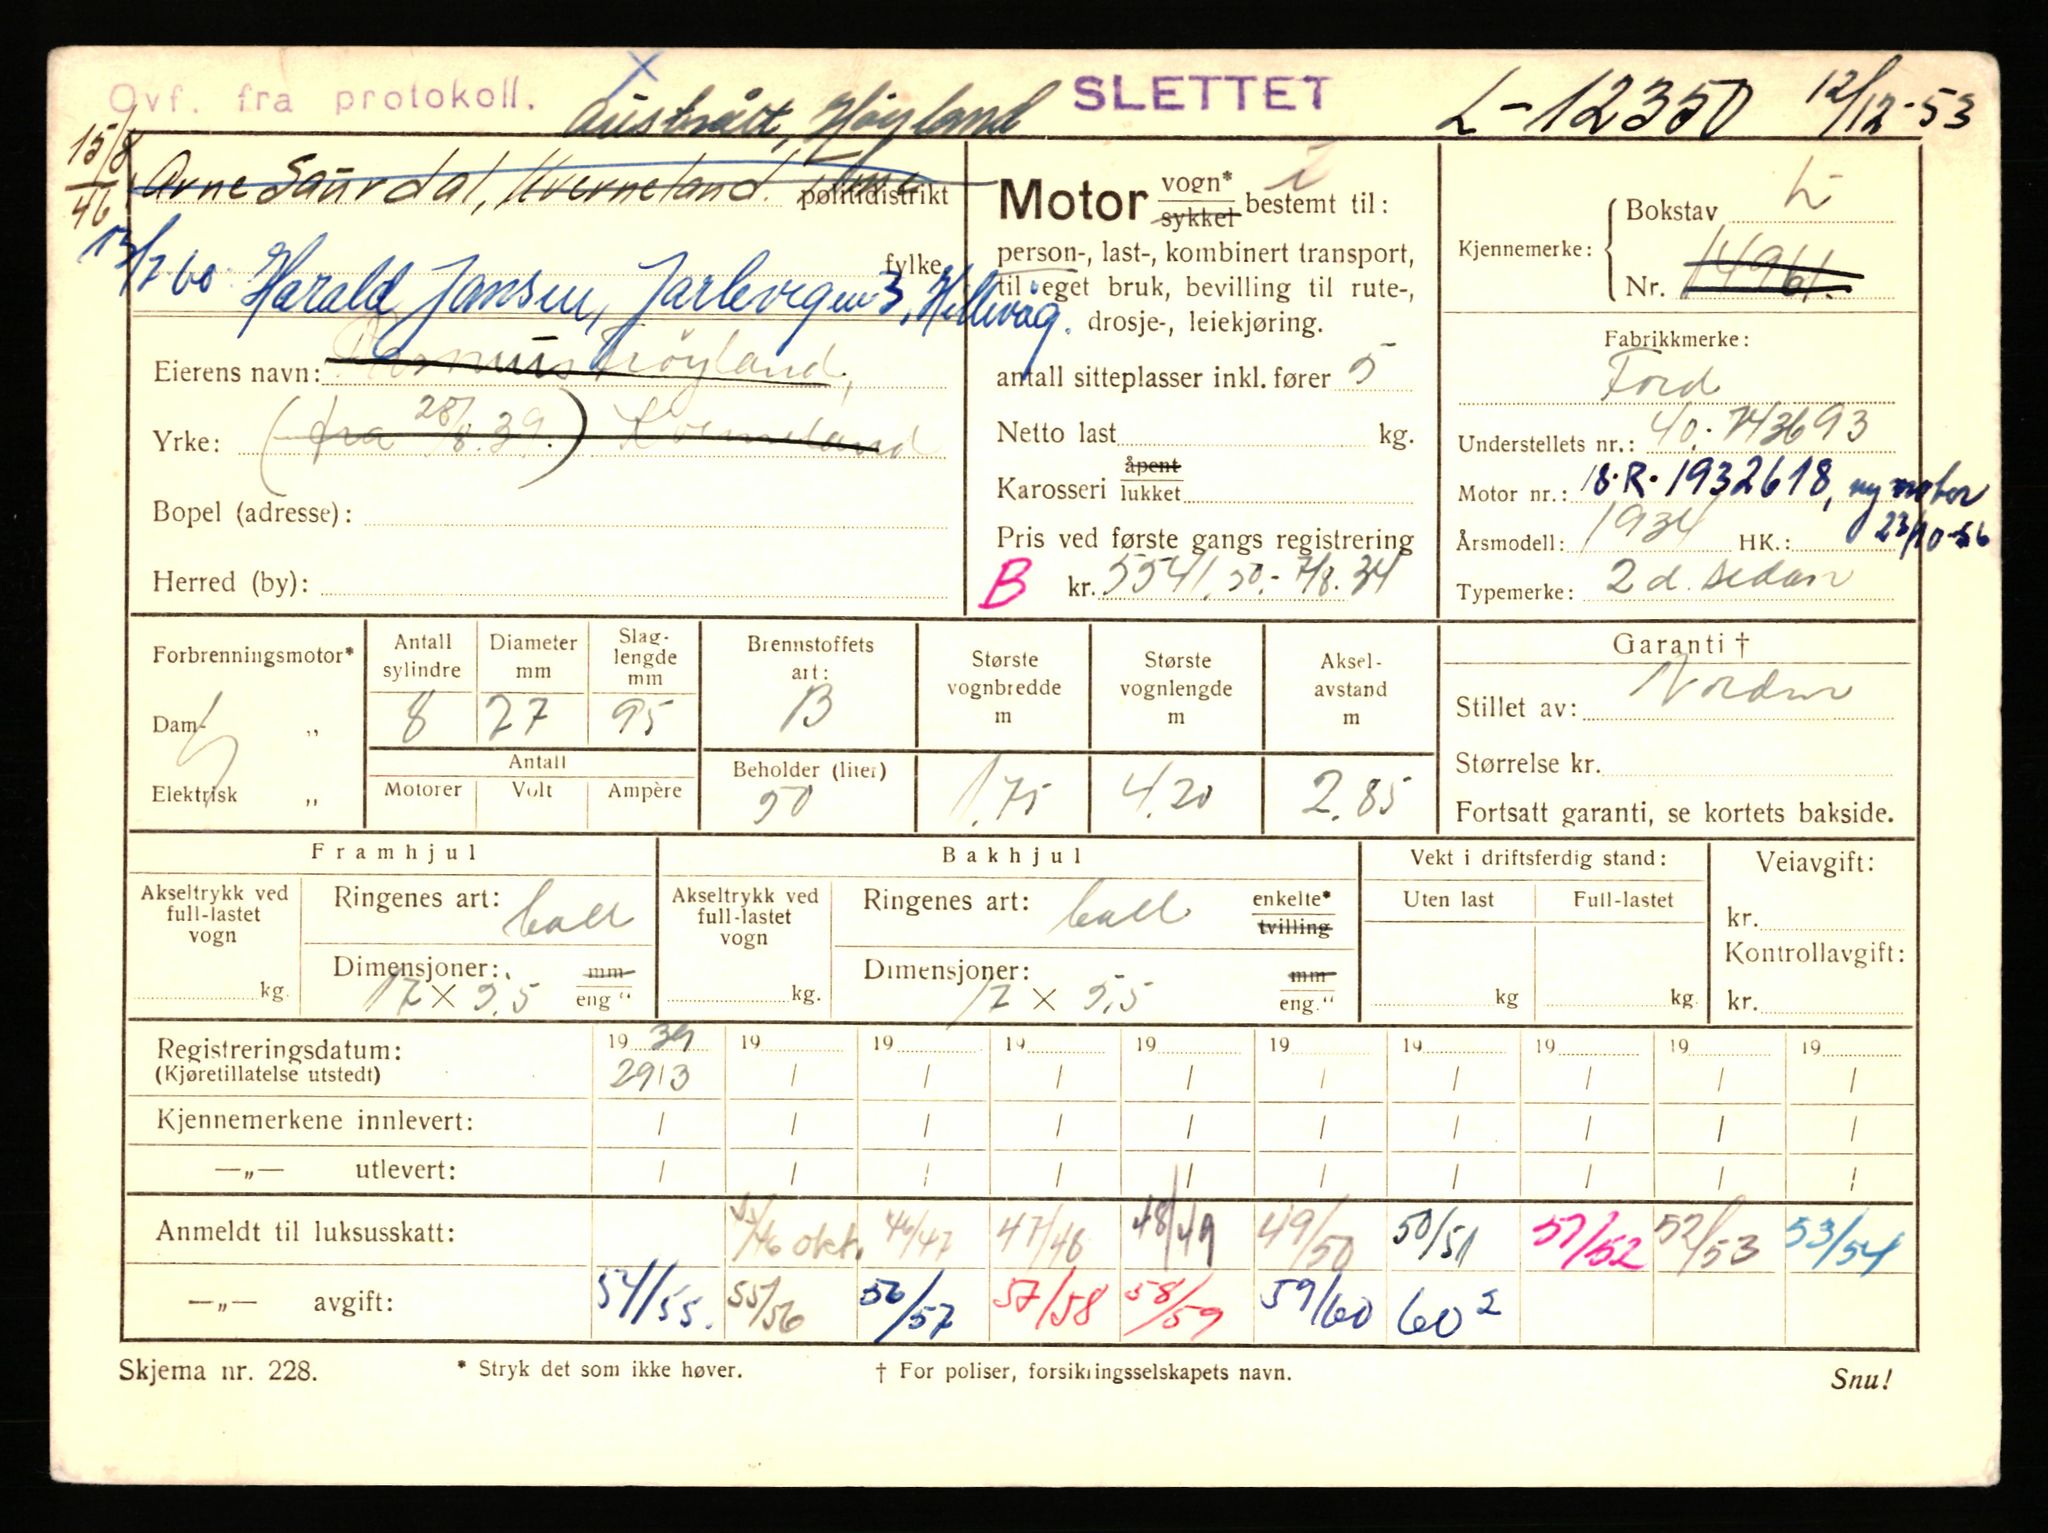 Ovf. fra protokoll.
SLETTET
L-12350 12/12-53
Austrått, Høyland
15/8 46
Arne Saurdal, Kverneland. politidistrikt
13/7 60. Harald Jansen, Jarlevegen 3, Hillevåg.
fylke
Eierens navn: Rasmus Frøyland,
Yrke: (fra 28/8.39.) Kverneland
Bopel (adresse):
Herred (by):
Motor vogn* sykkel bestemt til:
person-, last-, kombinert transport,
til eget bruk, bevilling til rute-,
drosje-, leiekjøring.
antall sitteplasser inkl. fører 5
Netto last kg.
Karosseri åpent lukket
Pris ved første gangs registrering
B kr. 5541,50.- 7/8.34
Kjennemerke: Bokstav L
Nr. 14961.
Fabrikkmerke:
Ford
Understellets nr.: 40.-743693
Motor nr.: 18.R.1932618, ny motor
23/10-56
Årsmodell: 1934 HK.:
Typemerke: 2 d. sedan
Forbrenningsmotor*
Dam- „
Elektrisk „
Antall sylindre 8
Diameter mm 77
Slag-lengde mm 95
Antall
Motorer Volt Ampère
Brennstoffets art: B
Beholder (liter) 50
Største vognbredde m 1.75
Største vognlengde m 4.20
Aksel-avstand m 2.85
Garanti †
Stillet av: Norden
Størrelse kr.
Fortsatt garanti, se kortets bakside.
Framhjul
Akseltrykk ved full-lastet vogn kg.
Ringenes art: ball
Dimensjoner: 17 x 5,5 mm eng "
Bakhjul
Akseltrykk ved full-lastet vogn kg.
Ringenes art: ball enkelte* tvilling
Dimensjoner: 17 x 5,5 mm eng."
Vekt i driftsferdig stand:
Uten last Full-lastet
kg kg.
Veiavgift:
kr.
Kontrollavgift:
kr.
Registreringsdatum: 1939 19 19 19 19 19 19 19 19 19
(Kjøretillatelse utstedt) 29/3 / / / / / / / / /
Kjennemerkene innlevert: / / / / / / / / / /
—„— utlevert: / / / / / / / / / /
Anmeldt til luksusskatt: /46 okt. 46/47 47/48 48/49 49/50 50/51 51/52 52/53 53/54
—„— avgift: 54/55. 55/56 56/57 57/58 58/59 59/60 60²
Skjema nr. 228.
* Stryk det som ikke høver.
† For poliser, forsikringsselskapets navn.
Snu!